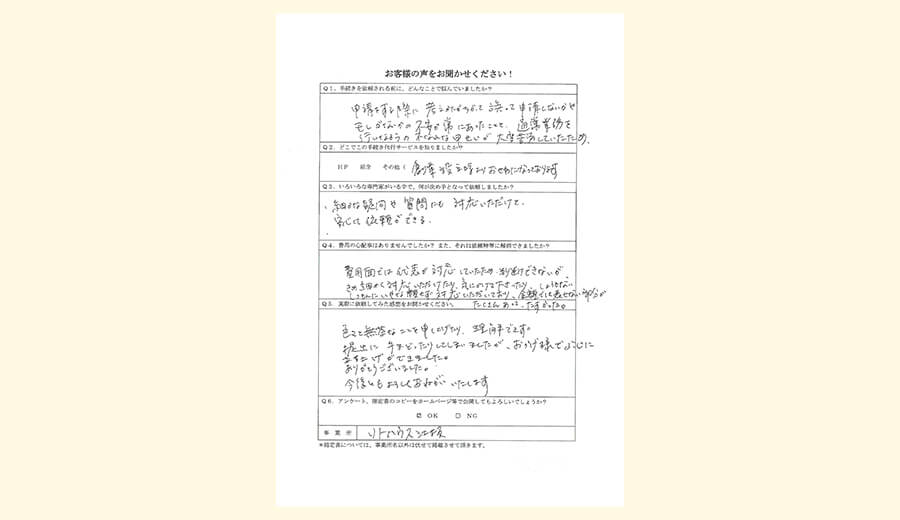 お客様の声をお聞かせください！
Q1．手続きを依頼される前に、どんなことで悩んでいましたか？
申請をする際に 誤って申請しないかや
モレがないかの不安が常にあったことと、通常業務を
行いながらの 大変苦労していたため。
Q2．どこでこの手続き代行サービスを知りましたか？
HP 紹介 その他（ 創業設立時よりおせわになっております
Q3．いろいろな専門家がいる中で、何が決め手となって依頼しましたか？
・細かな疑問や質問にも対応いただけて、
安心して依頼ができる。
Q4．費用の心配事はありませんでしたか？また、それは依頼時等に解消できましたか？
費用面では代表が対応していたため、 できないが、
きめ細かく対応いただけたり、気にかけて下さったり、
いやな顔せず対応いただいており、金額でも表せない部分が
たくさんあり、たすかった。
Q5．実際に依頼してみた感想をお聞かせください。
色々と無茶なことを申し上げたり、
提出に手まどったりしてしまいましたが、おかげ様で
立ち上げができました。
ありがとうございました。
今後ともよろしくおねがいいたします
Q6．アンケート、指定書のコピーをホームページ等で公開してもよろしいでしょうか？
☑ OK □ NG
事業所 リトルハウス江坂
＊指定書については、事業所名以外は伏せて掲載させて頂きます。